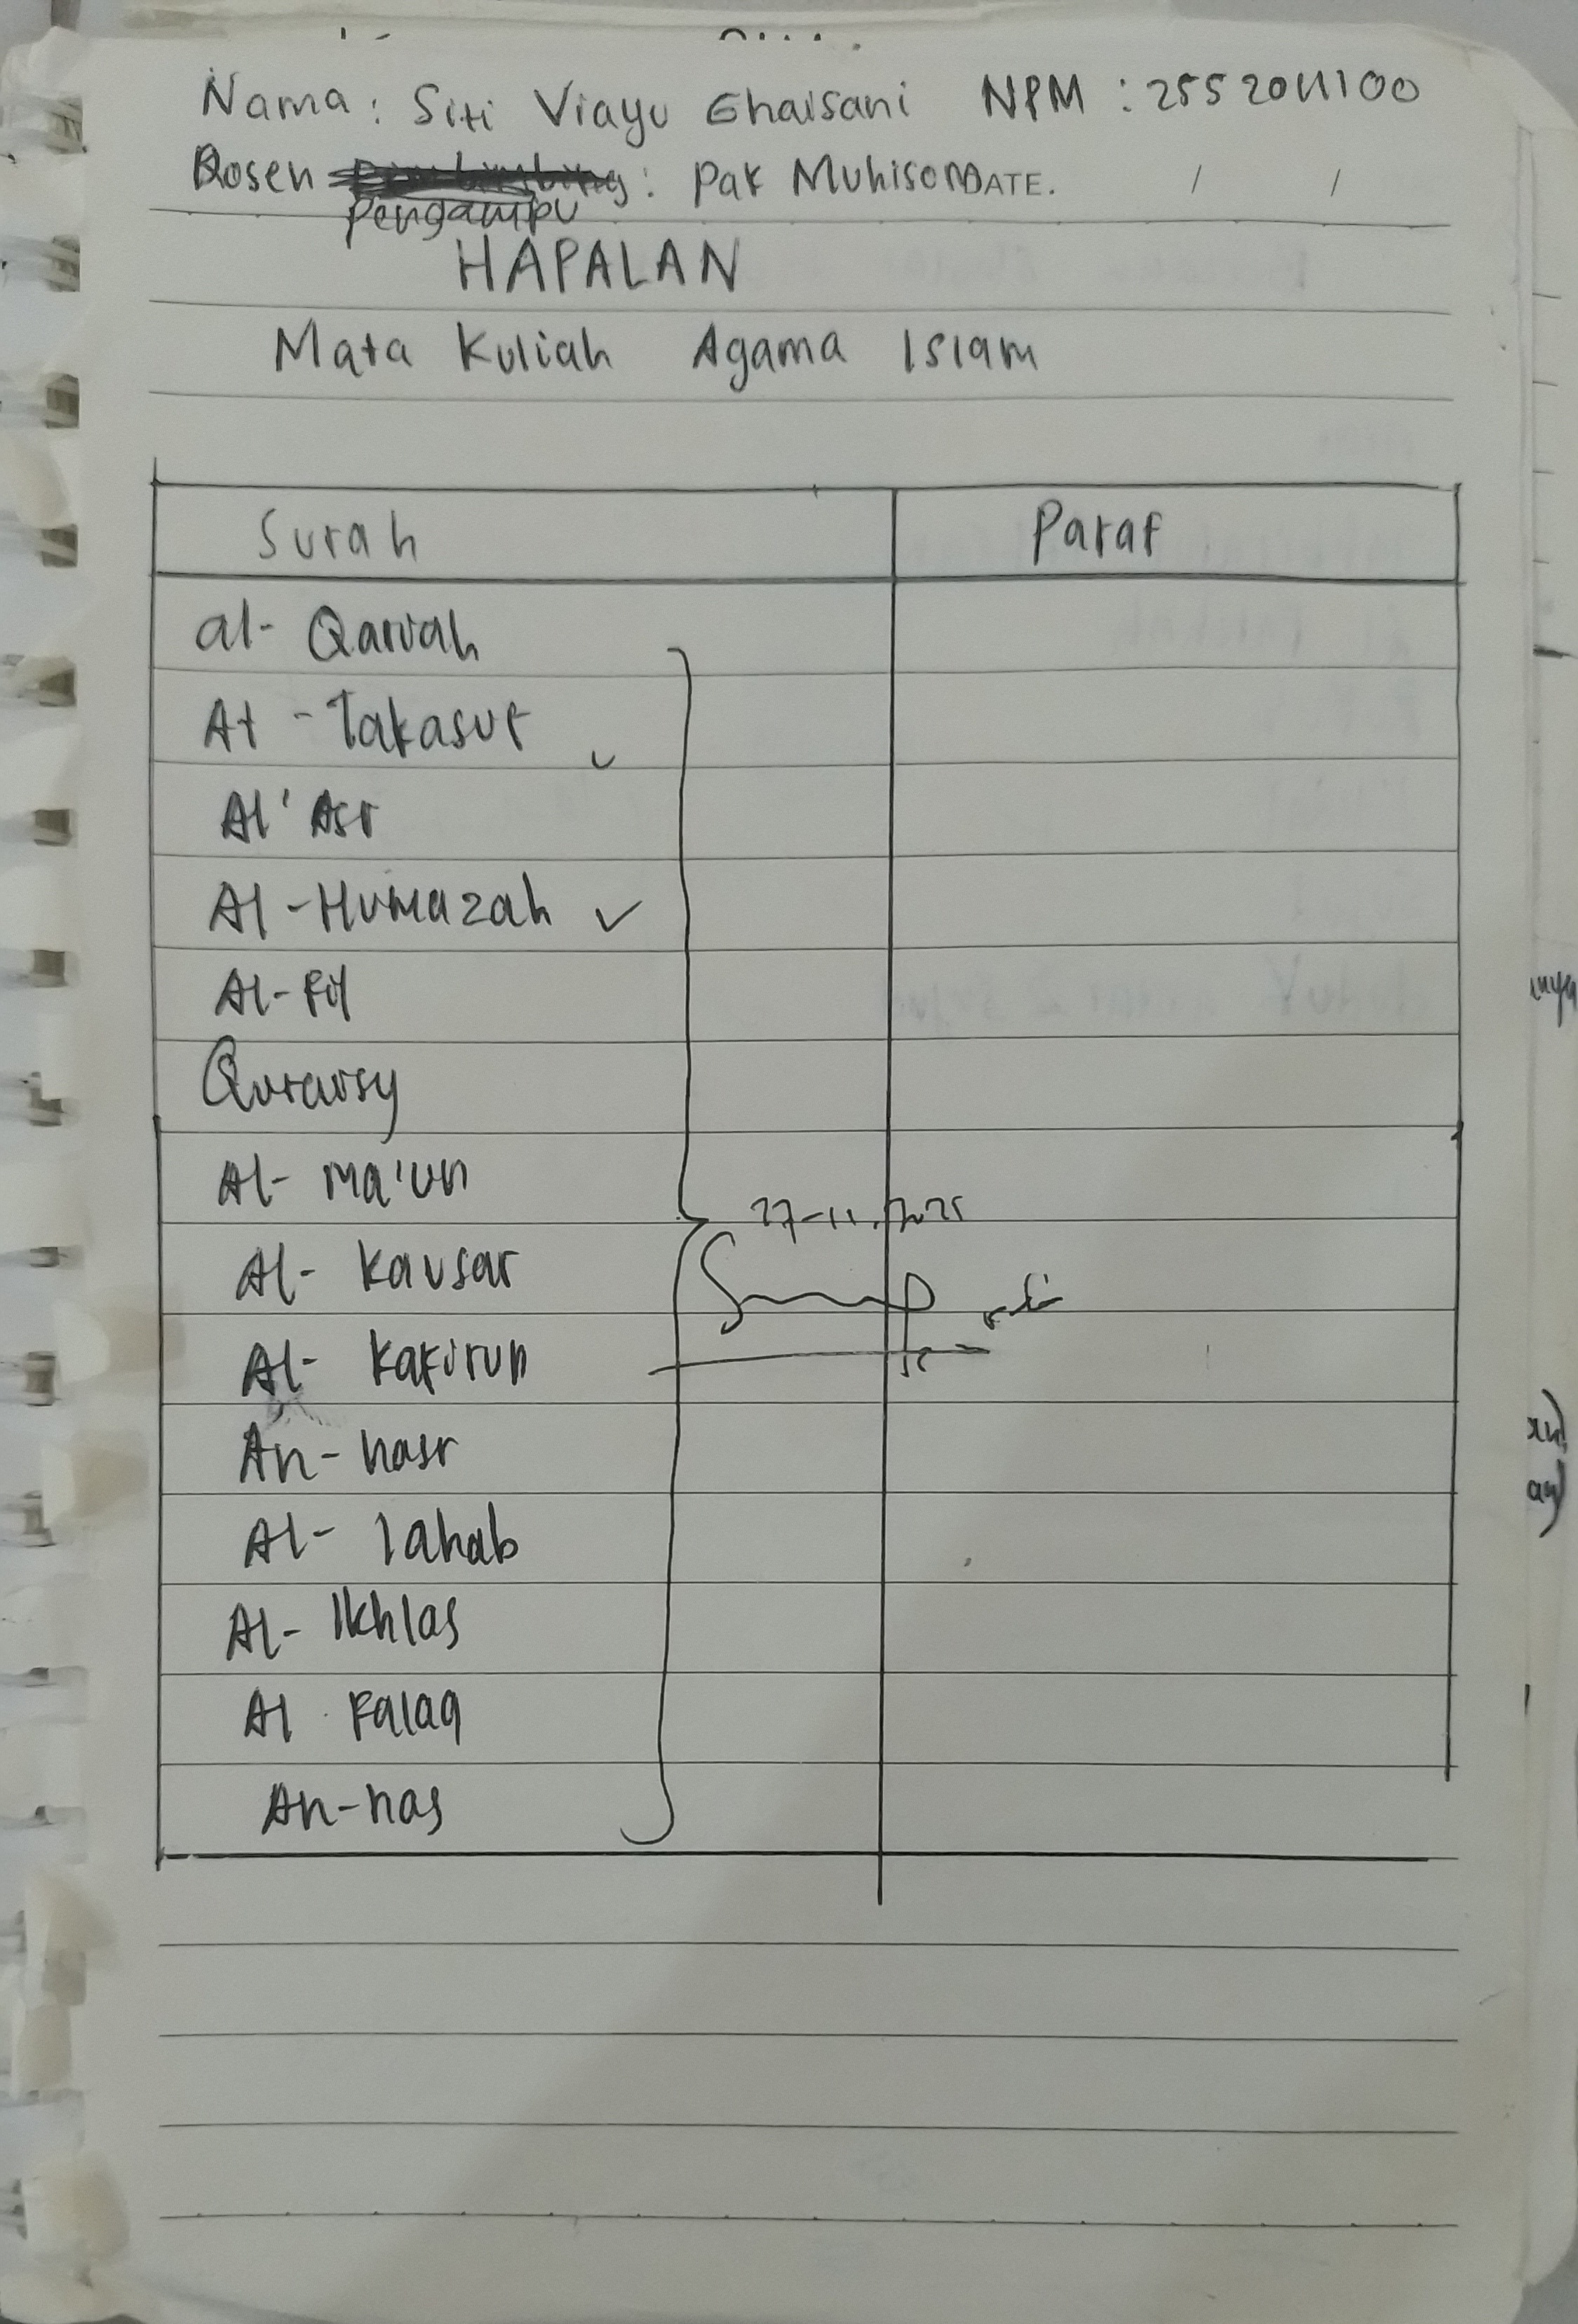 Nama : Siti Viayu Ghaisani NPM : 2552011100
Dosen : Pak Muhison DATE. / /
Pengampu
HAPALAN
Mata Kuliah Agama Islam
Surah Paraf
al- Qariah
At - Takasur
Al' Asr
Al - Humazah ✓
Al- Fil
Quraisy
Al- Ma'un
27-11.2025
Al- Kausar
Al- Kafirun
An- nasr
Al- lahab
Al- Ikhlas
Al Falaq
An-nas